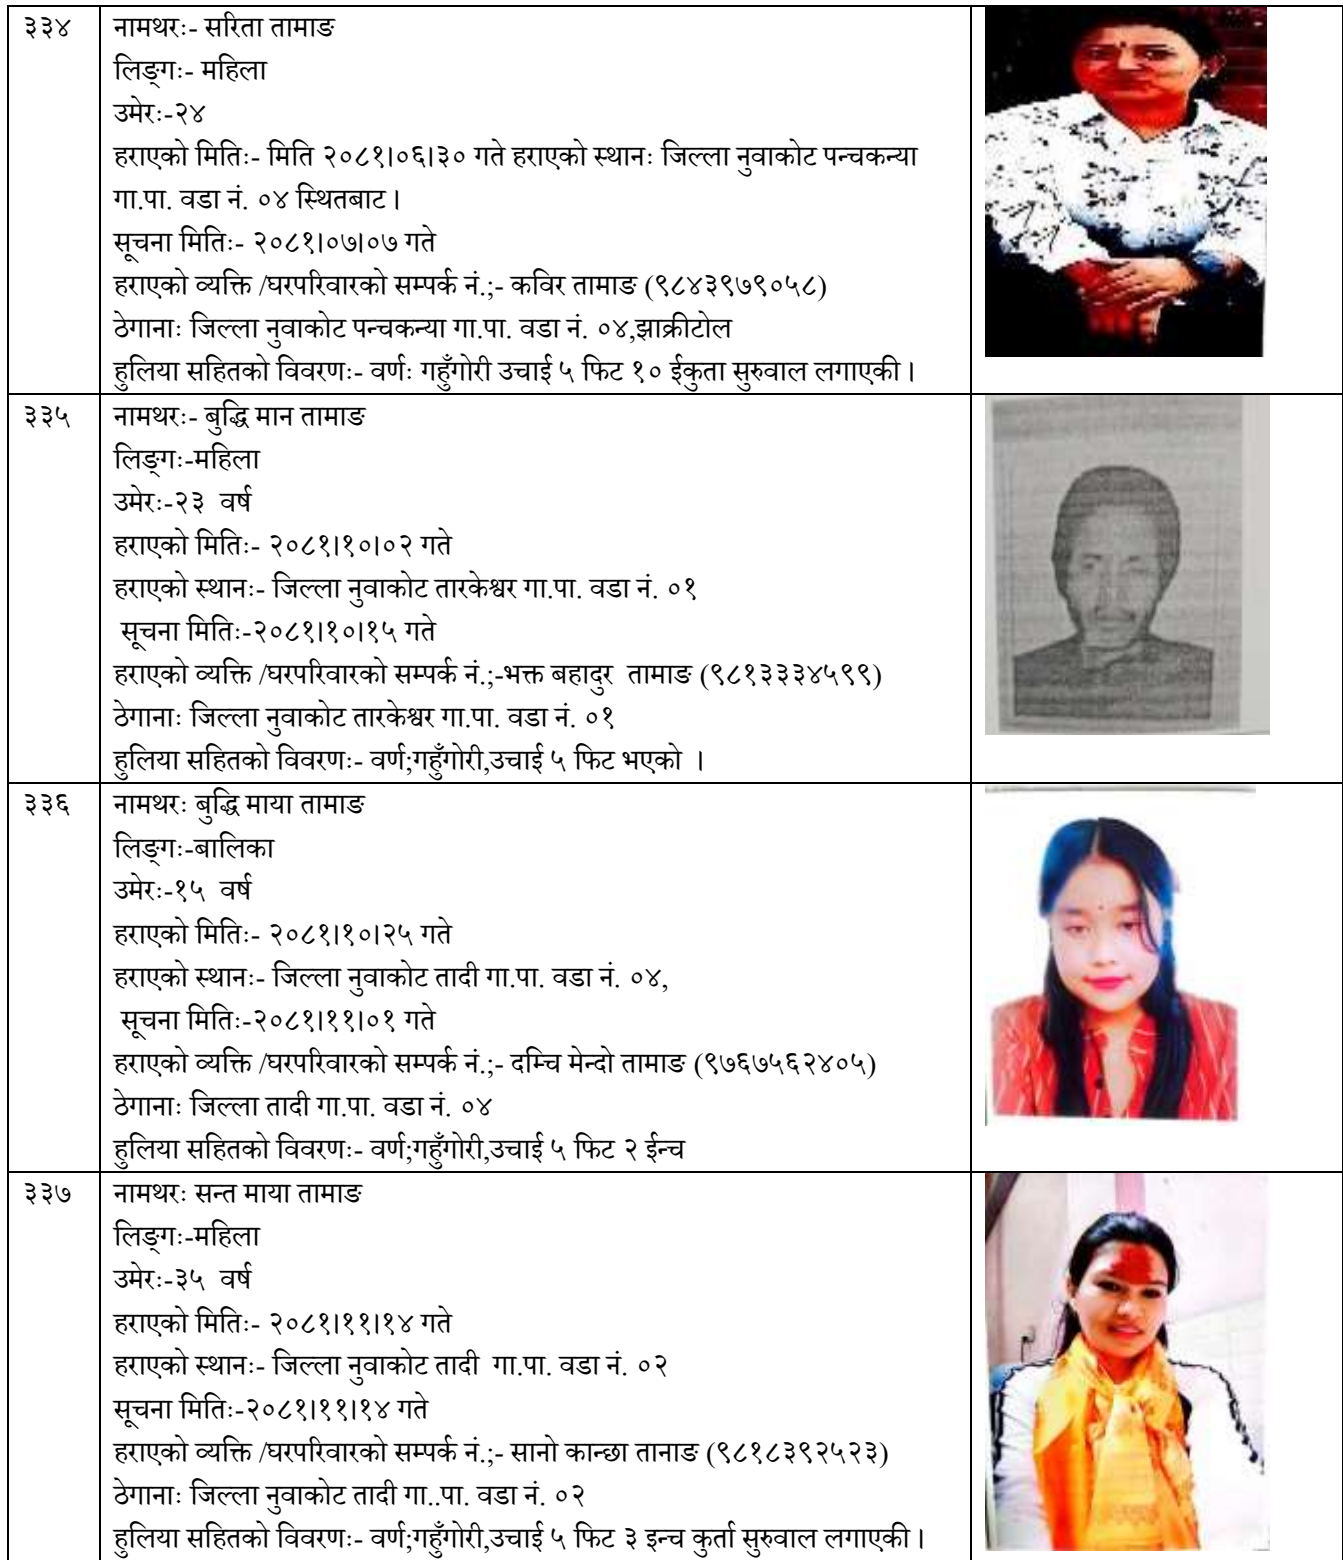 ३३४
नामथरः- सरिता तामाङ
लिङ्गः- महिला
उमेरः-२४
हराएको मितिः- मिति २०८१।०६।३० गते हराएको स्थानः जिल्ला नुवाकोट पन्चकन्या
गा.पा. वडा नं. ०४ स्थितबाट।
सूचना मितिः- २०८१।०७।०७ गते
हराएको व्यक्ति /घरपरिवारको सम्पर्क नं.;- कविर तामाङ (९८४३९७९०५८)
ठेगानाः जिल्ला नुवाकोट पन्चकन्या गा.पा. वडा नं. ०४,झाक्रीटोल
हुलिया सहितको विवरणः- वर्णः गहुँगोरी उचाई ५ फिट १० ईकुता सुरुवाल लगाएकी।
३३५
नामथरः- बुद्धि मान तामाङ
लिङ्गः-महिला
उमेरः-२३ वर्ष
हराएको मितिः- २०८१।१०।०२ गते
हराएको स्थानः- जिल्ला नुवाकोट तारकेश्वर गा.पा. वडा नं. ०१
सूचना मितिः-२०८१।१०।१५ गते
हराएको व्यक्ति /घरपरिवारको सम्पर्क नं.;-भक्त बहादुर तामाङ (९८१३३३४५९९)
ठेगानाः जिल्ला नुवाकोट तारकेश्वर गा.पा. वडा नं. ०१
हुलिया सहितको विवरणः- वर्ण;गहुँगोरी,उचाई ५ फिट भएको ।
३३६
नामथरः बुद्धि माया तामाङ
लिङ्गः-बालिका
उमेरः-१५ वर्ष
हराएको मितिः- २०८१।१०।२५ गते
हराएको स्थानः- जिल्ला नुवाकोट तादी गा.पा. वडा नं. ०४,
सूचना मितिः-२०८१।११।०१ गते
हराएको व्यक्ति /घरपरिवारको सम्पर्क नं.;- दम्चि मेन्दो तामाङ (९७६७५६२४०५)
ठेगानाः जिल्ला तादी गा.पा. वडा नं. ०४
हुलिया सहितको विवरणः- वर्ण;गहुँगोरी,उचाई ५ फिट २ ईन्च
३३७
नामथरः सन्त माया तामाङ
लिङ्गः-महिला
उमेरः-३५ वर्ष
हराएको मितिः- २०८१।११।१४ गते
हराएको स्थानः- जिल्ला नुवाकोट तादी गा.पा. वडा नं. ०२
सूचना मितिः-२०८१।११।१४ गते
हराएको व्यक्ति /घरपरिवारको सम्पर्क नं.;- सानो कान्छा तानाङ (९८१८३९२५२३)
ठेगानाः जिल्ला नुवाकोट तादी गा..पा. वडा नं. ०२
हुलिया सहितको विवरणः- वर्ण;गहुँगोरी,उचाई ५ फिट ३ इन्च कुर्ता सुरुवाल लगाएकी।